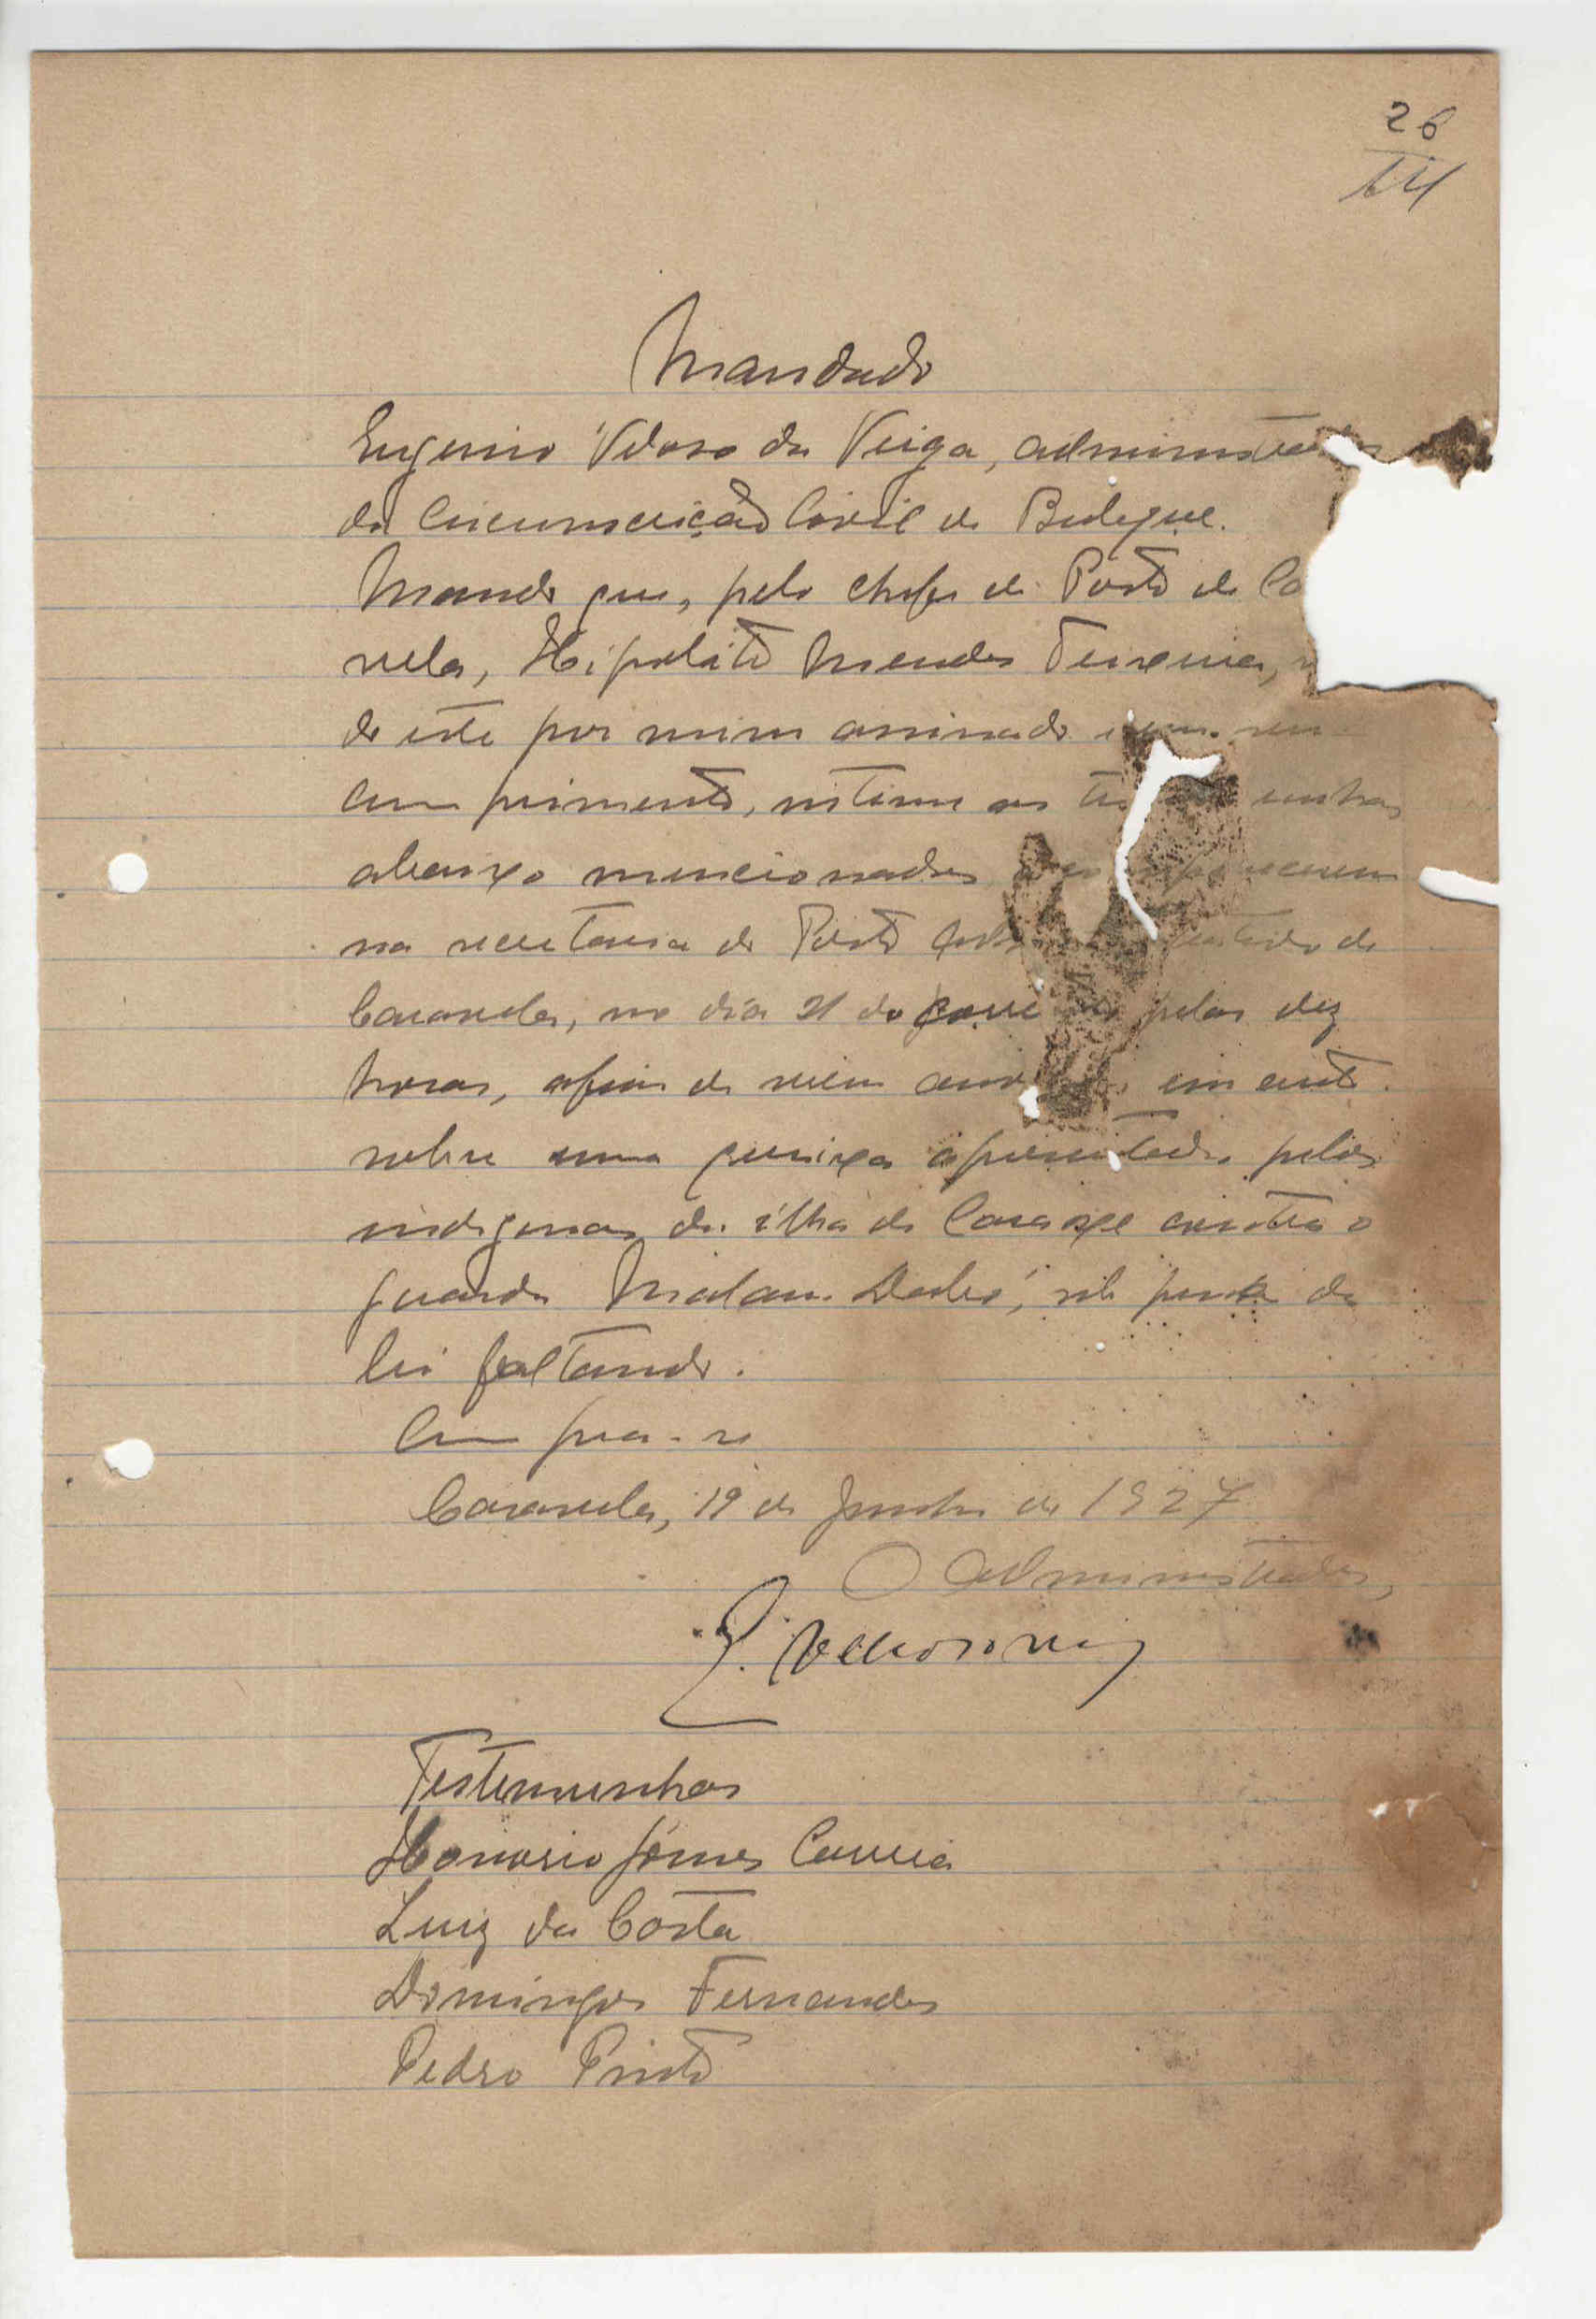 26
Mandado
Eugenio Veloso da Veiga, administrador
da Circunscrição Civil de Bubaque.
Mando que, pelo chefe do Posto de Ca
vela, Hipolito Mendes Teixeira,
do este por mim assinado em seu
cumprimento, intime as tes unhas
abaixo mencionadas a parecerem
na secretaria do Posto de
Caravela, no dia 21 do corre pelas dez
horas, afim de serem em auto
sobre uma queixa apresentada pelos
indigenas da ilha de Carache contra o
guarda Malam Dabó, sob pena da
lei faltando.
Cumpra-se
Caravela, 19 de Junho de 1927
O Administrador,
E. Velloso Veiga
Testemunhas
Honorio Gomes Correia
Luiz da Costa
Domingos Fernandes
Pedro Pinto